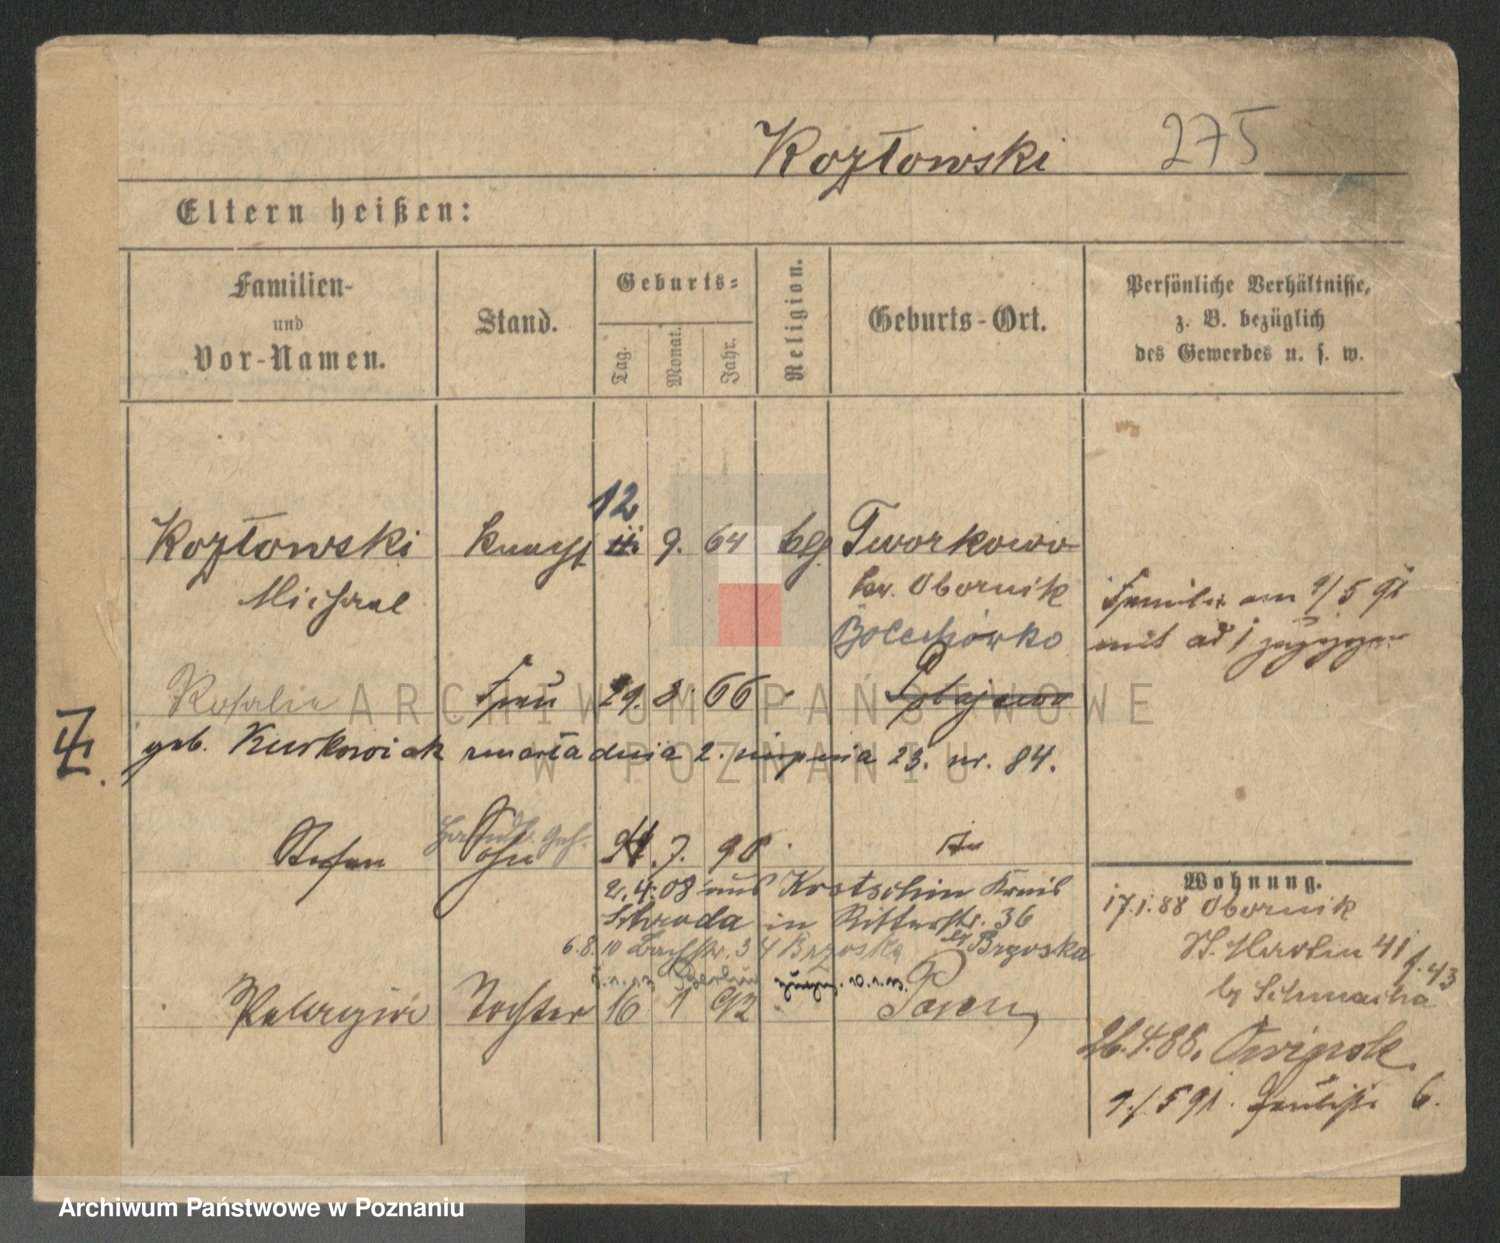 Kozłowski 275
Eltern heißen:
Familien-
und
Vor-Namen.
Stand.
Geburts-
Tag.
Monat.
Jahr.
Religion.
Geburts-Ort.
Persönliche Verhältnisse,
z. B. bezüglich
des Gewerbes u. s. w.
12
Kozłowski Knecht 11. 9. 64 Tworkowo
Michael Kr. Obornik
Bolechowko
Familie am 9/5 91
mit
Rosalie Frau 29. 8. 66
geb. Kurkowiak zmarła dnia 2. sierpnia 23. nr. 84.
Stefan Sohn 7. 90
2.4.08 aus Kostschin Kreis
Schroda in Ritterstr. 36
6.8.10 Bachstr. 34 Brzoska by Brzoska
Pelagia Tochter 16 1 92 Posen
Wohnung.
17.1.88 Obornik
St. Martin 41
by
26.4.88.
9./5 91. 6.
ARCHIWUM PAŃSTWOWE
W POZNANIU
Archiwum Państwowe w Poznaniu